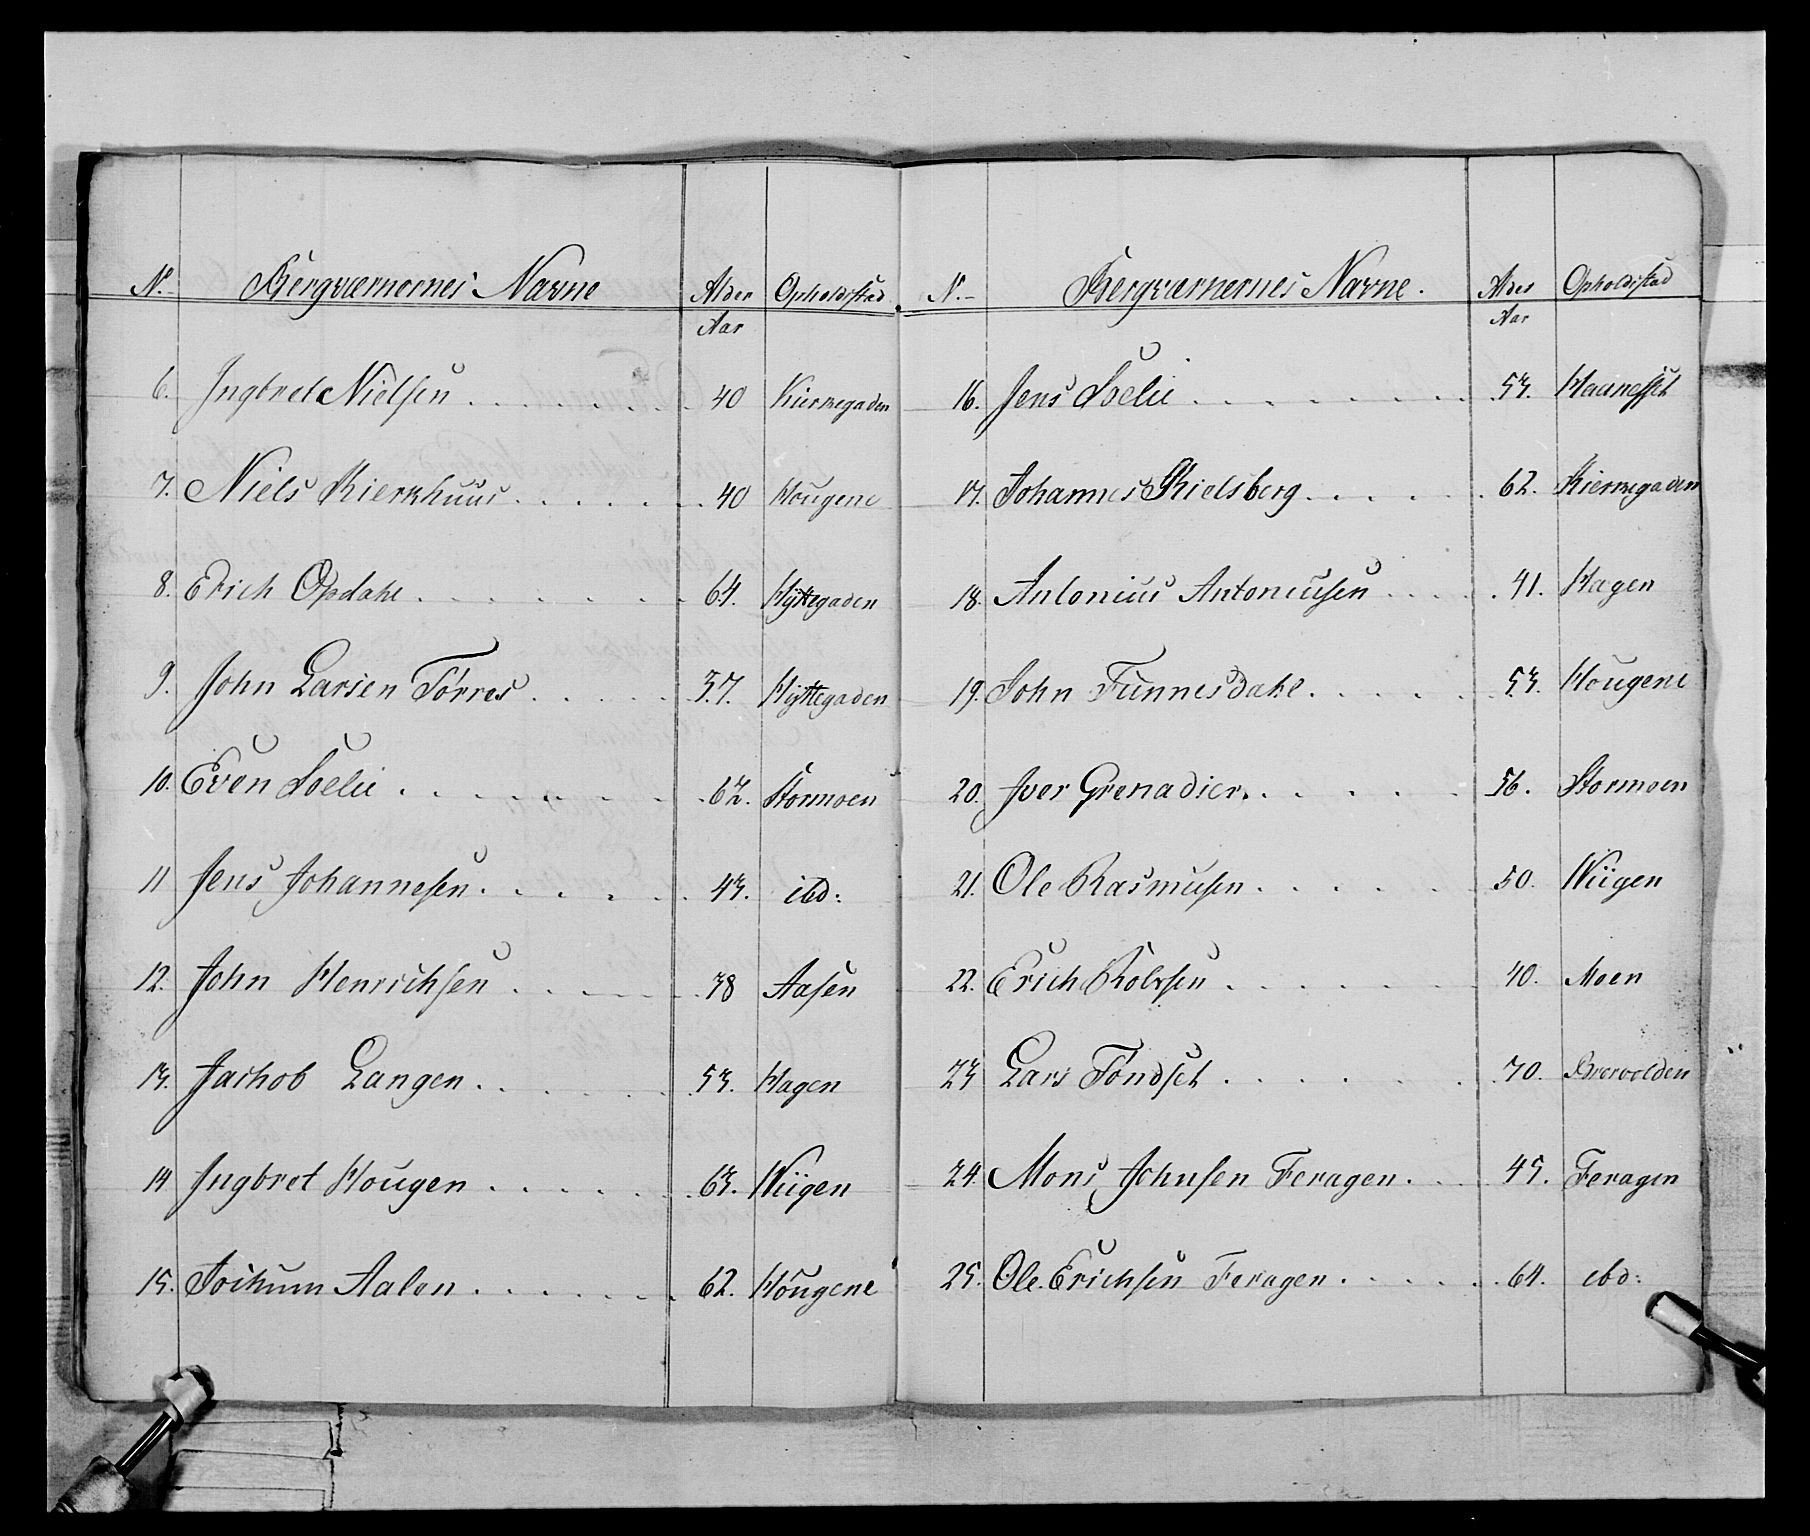 N. Bergværnernes Navne Alder Opholdsted
Aar
6. Ingbret Nielsen 40 Kiernegaden
7. Niels Kierkhuus 40 Hougene
8. Erich Opdahl 64. Hyttegaden
9. John Larsen Törres 37. Hyttegaden
10. Even Loelie 63. Stormoen
11 Jens Johannesen 43. ibd:
12. John Henrichsen 38 Aasen
13. Jachob Langen 53. Hagen
14 Ingbret Hougen 63. Wiigen
15. Jochum Aalen 62. Hougene
N. Bergværnernes Navne. Alder Opholdsted
Aar
16. Jens Loelie 53. Haanesset
17. Johannes Skielsberg 62. Kiernegaden
18. Antonius Antoniusen 41. Hagen
19. John Funnesdahl 53. Hougene
20. Iver Grenadier 56. Stormoen
21. Ole Rasmusen 50. Wiigen
22. Erich Rolvsen 40. Moen
23 Lars Töndset 70. Prærvolden
24. Mons Johnsen Feragen 45. Feragen
25. Ole Erichsen Feragen 64. ibd: